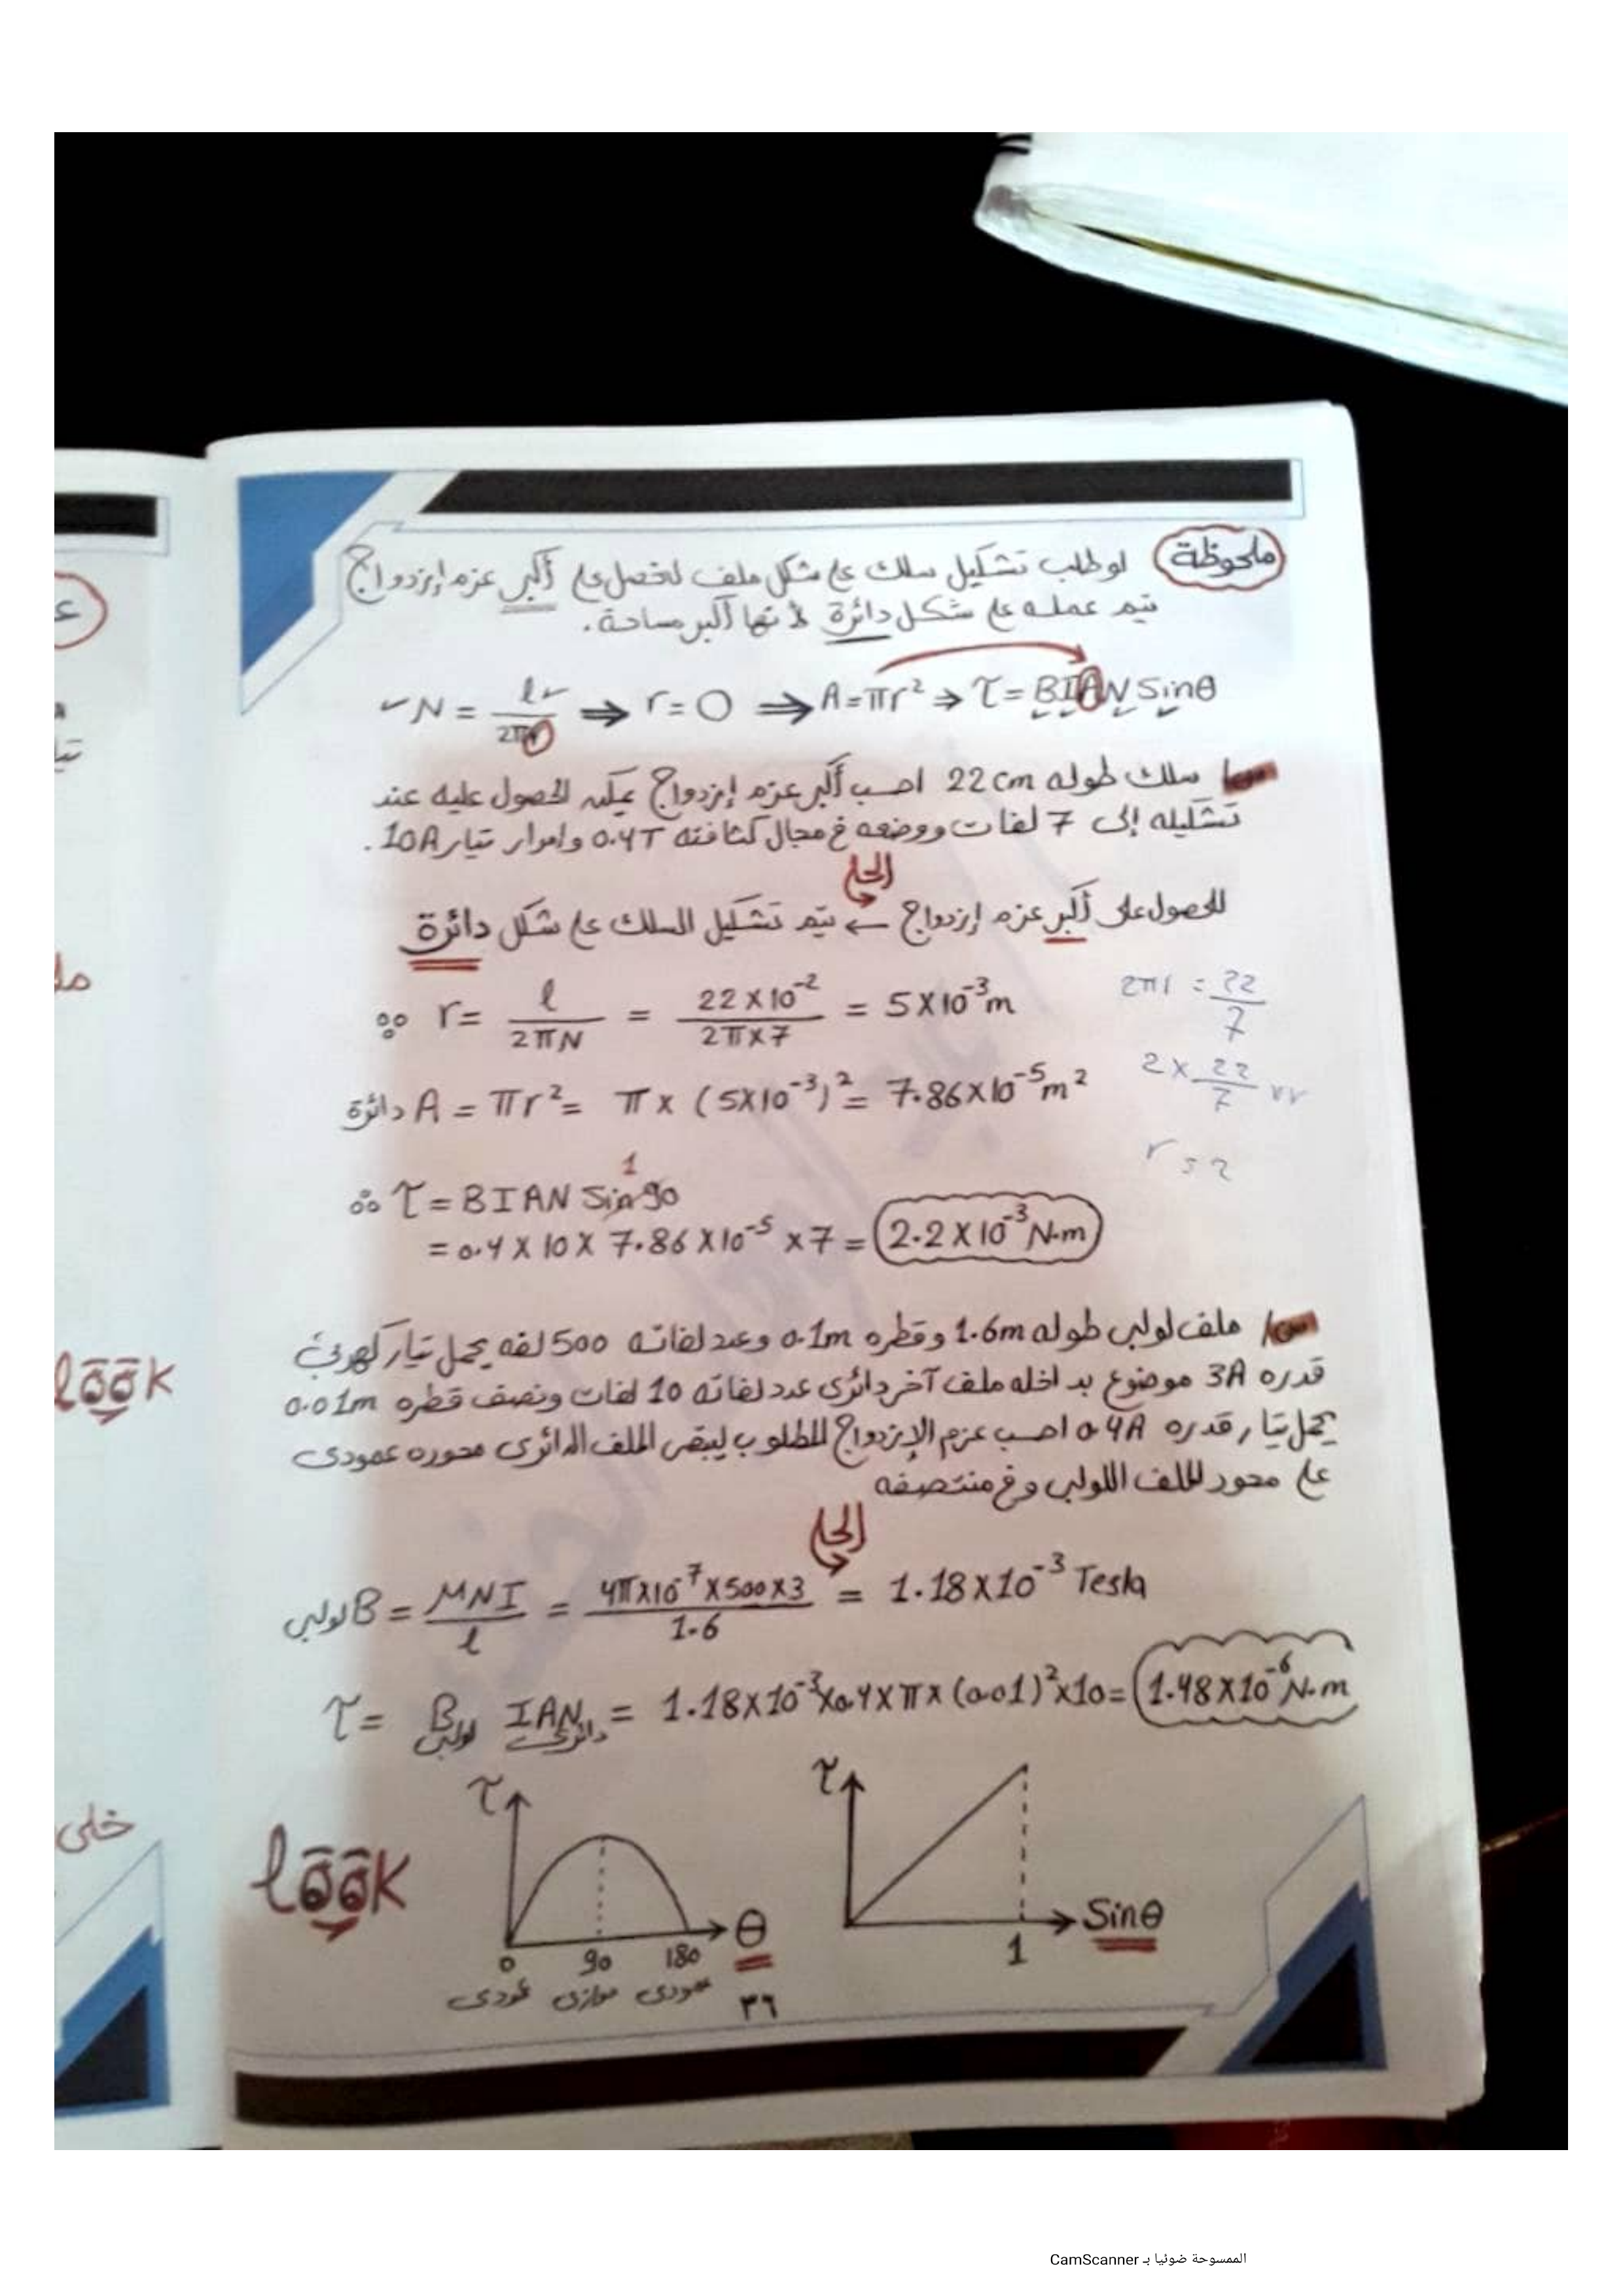 ملحوظة لو طلب تشكيل سلك على شكل ملف لنحصل على أكبر عزم إزدواج
يتم عمله على شكل دائرة لأنها أكبر مساحة.
N = l / 2πr ⇒ r = O ⇒ A = πr² ⇒ τ = BIAN Sinθ
س/ سلك طوله 22 cm احسب أكبر عزم إزدواج يمكن الحصول عليه عند
تشكيله إلى 7 لفات ووضعه في مجال كثافته 0.4T وامرار تيار 10A.
الحل
للحصول على أكبر عزم إزدواج ← يتم تشكيل السلك على شكل دائرة
∴ r = l / 2πN = 22 X 10⁻² / 2π X 7 = 5 X 10⁻³ m
2πr = 22 / 7
A دائرة = πr² = π x (5X10⁻³)² = 7.86 X 10⁻⁵ m²
2 x 22 / 7
∴ τ = BIAN Sin 90 1
= 0.4 X 10 X 7.86 X 10⁻⁵ x 7 = 2.2 X 10⁻³ N.m
س/ ملف لولبى طوله 1.6m وقطره 0.1m وعدد لفاته 500 لفه يحمل تيار كهربى
قدره 3A موضوع بداخله ملف آخر دائرى عدد لفاته 10 لفات ونصف قطره 0.01m
يحمل تيار قدره 0.4A احسب عزم الإزدواج المطلوب ليبقى الملف الدائرى محوره عمودى
على محور الملف اللولبى وفي منتصفه
الحل
B لولبى = μNI / l = 4π X 10⁻⁷ X 500 X 3 / 1.6 = 1.18 X 10⁻³ Tesla
τ = B لولبى IAN دائرى = 1.18 X 10⁻³ X 0.4 X π x (0.01)² x 10 = 1.48 X 10⁻⁶ N.m
look
τ θ
0 90 180
عمودى موازى عمودى
τ Sinθ
1
٣٦
look
خلى
الممسوحة ضوئيا بـ CamScanner